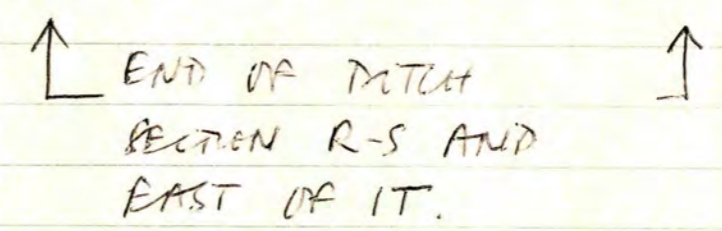 END OF DITCH
SECTION R-S AND
EAST OF IT.